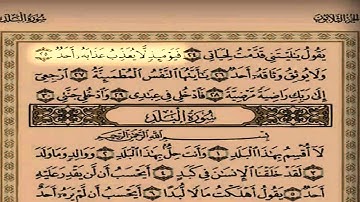 سورة البلد
الجزء الثلاثون
يَقُولُ يَٰلَيْتَنِي قَدَّمْتُ لِحَيَاتِي ٢٤ فَيَوْمَئِذٍ لَّا يُعَذِّبُ عَذَابَهُۥٓ أَحَدٌ ٢٥
وَلَا يُوثِقُ وَثَاقَهُۥٓ أَحَدٌ ٢٦ يَٰٓأَيَّتُهَا ٱلنَّفْسُ ٱلْمُطْمَئِنَّةُ ٢٧ ٱرْجِعِىٓ
إِلَىٰ رَبِّكِ رَاضِيَةً مَّرْضِيَّةً ٢٨ فَٱدْخُلِى فِى عِبَٰدِى ٢٩ وَٱدْخُلِى جَنَّتِى ٣٠
سُورَةُ ٱلْبَلَدِ
بِسْمِ ٱللَّهِ ٱلرَّحْمَٰنِ ٱلرَّحِيمِ
لَآ أُقْسِمُ بِهَٰذَا ٱلْبَلَدِ ١ وَأَنتَ حِلٌّۢ بِهَٰذَا ٱلْبَلَدِ ٢ وَوَالِدٍ وَمَا وَلَدَ
٣ لَقَدْ خَلَقْنَا ٱلْإِنسَٰنَ فِى كَبَدٍ ٤ أَيَحْسَبُ أَن لَّن يَقْدِرَ عَلَيْهِ
أَحَدٌ ٥ يَقُولُ أَهْلَكْتُ مَالًا لُّبَدًا ٦ أَيَحْسَبُ أَن لَّمْ يَرَهُۥٓ أَحَدٌ